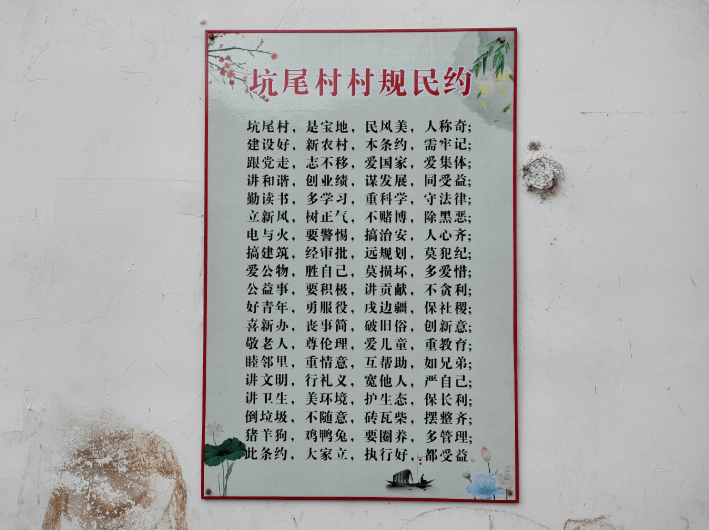 坑尾村村规民约
坑尾村，是宝地，民风美，人称奇；
建设好，新农村，本条约，需牢记；
跟党走，志不移，爱国家，爱集体；
讲和谐，创业绩，谋发展，同受益；
勤读书，多学习，重科学，守法律；
立新风，树正气，不赌博，除黑恶；
电与火，要警惕，搞治安，人心齐；
搞建筑，经审批，远规划，莫犯纪；
爱公物，胜自己，莫损坏，多爱惜；
公益事，要积极，讲贡献，不贪利；
好青年，勇服役，戍边疆，保社稷；
喜新办，丧事简，破旧俗，创新意；
敬老人，尊伦理，爱儿童，重教育；
睦邻里，重情意，互帮助，如兄弟；
讲文明，行礼义，宽他人，严自己；
讲卫生，美环境，护生态，保长利；
倒垃圾，不随意，砖瓦柴，摆整齐；
猪羊狗，鸡鸭兔，要圈养，多管理；
此条约，大家立，执行好，都受益。